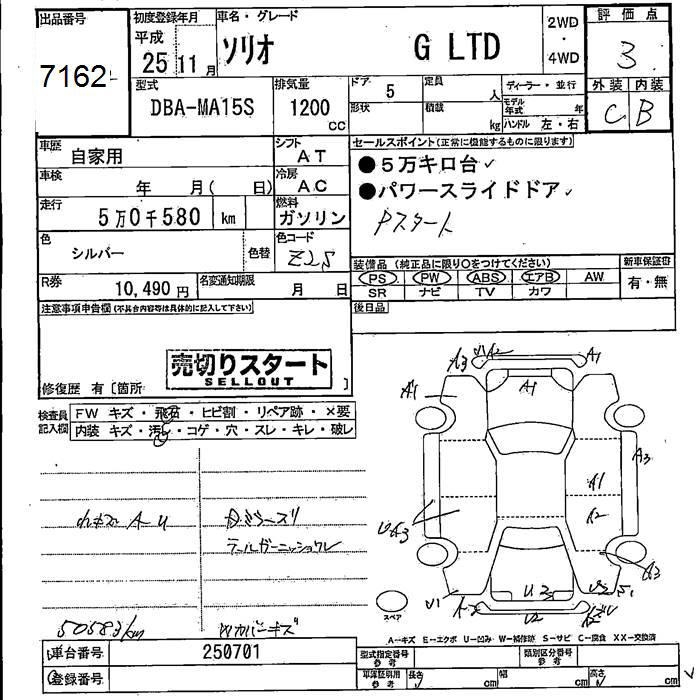 出品番号 初度登録年月 車名・グレード 2WD ・ 4WD 評価点
7162 平成 25 11月 ソリオ G LTD 3
型式 排気量 ドア 5 定員 人 ディーラー・並行 外装 内装
DBA-MA15S 1200 CC 形状 積載 kg モデル年式 年 C B
ハンドル 左・右
車歴 自家用 シフト AT セールスポイント(正常に機能するものに限ります)
車検 年 月( 日) 冷房 AC ●5万キロ台✓
走行 5万0千580 km 燃料 ガソリン ●パワースライドドア✓
Pスタート
色 シルバー 色替 色コード Z2S
装備品(純正品に限り○をつけてください) 新車保証書
R券 10,490円 名変通知期限 月 日 PS PW ABS エアB AW 有・無
SR ナビ TV カワ
注意事項申告欄(不具合内容等は具体的に記入して下さい) 後日品
売切りスタート
SELLOUT
修復歴 有〔箇所 〕
検査員記入欄 FW キズ・飛石・ヒビ割・リペア跡・×要
内装 キズ・汚れ・コゲ・穴・スレ・キレ・破レ
A3 A2 A1
A1 A1
A3
A1
A2
A3
A3
U3
U1 U2
テールガーニッショウレ
50583km Wカバーキズ
スペア
A-キズ E-エクボ U-凹み W-補修跡 S-サビ C-腐食 XX-交換済
車台番号 250701 型式指定番号 参考 類別区分番号 参考
登録番号 車庫証明用 参考 長さ cm 幅 cm 高さ cm